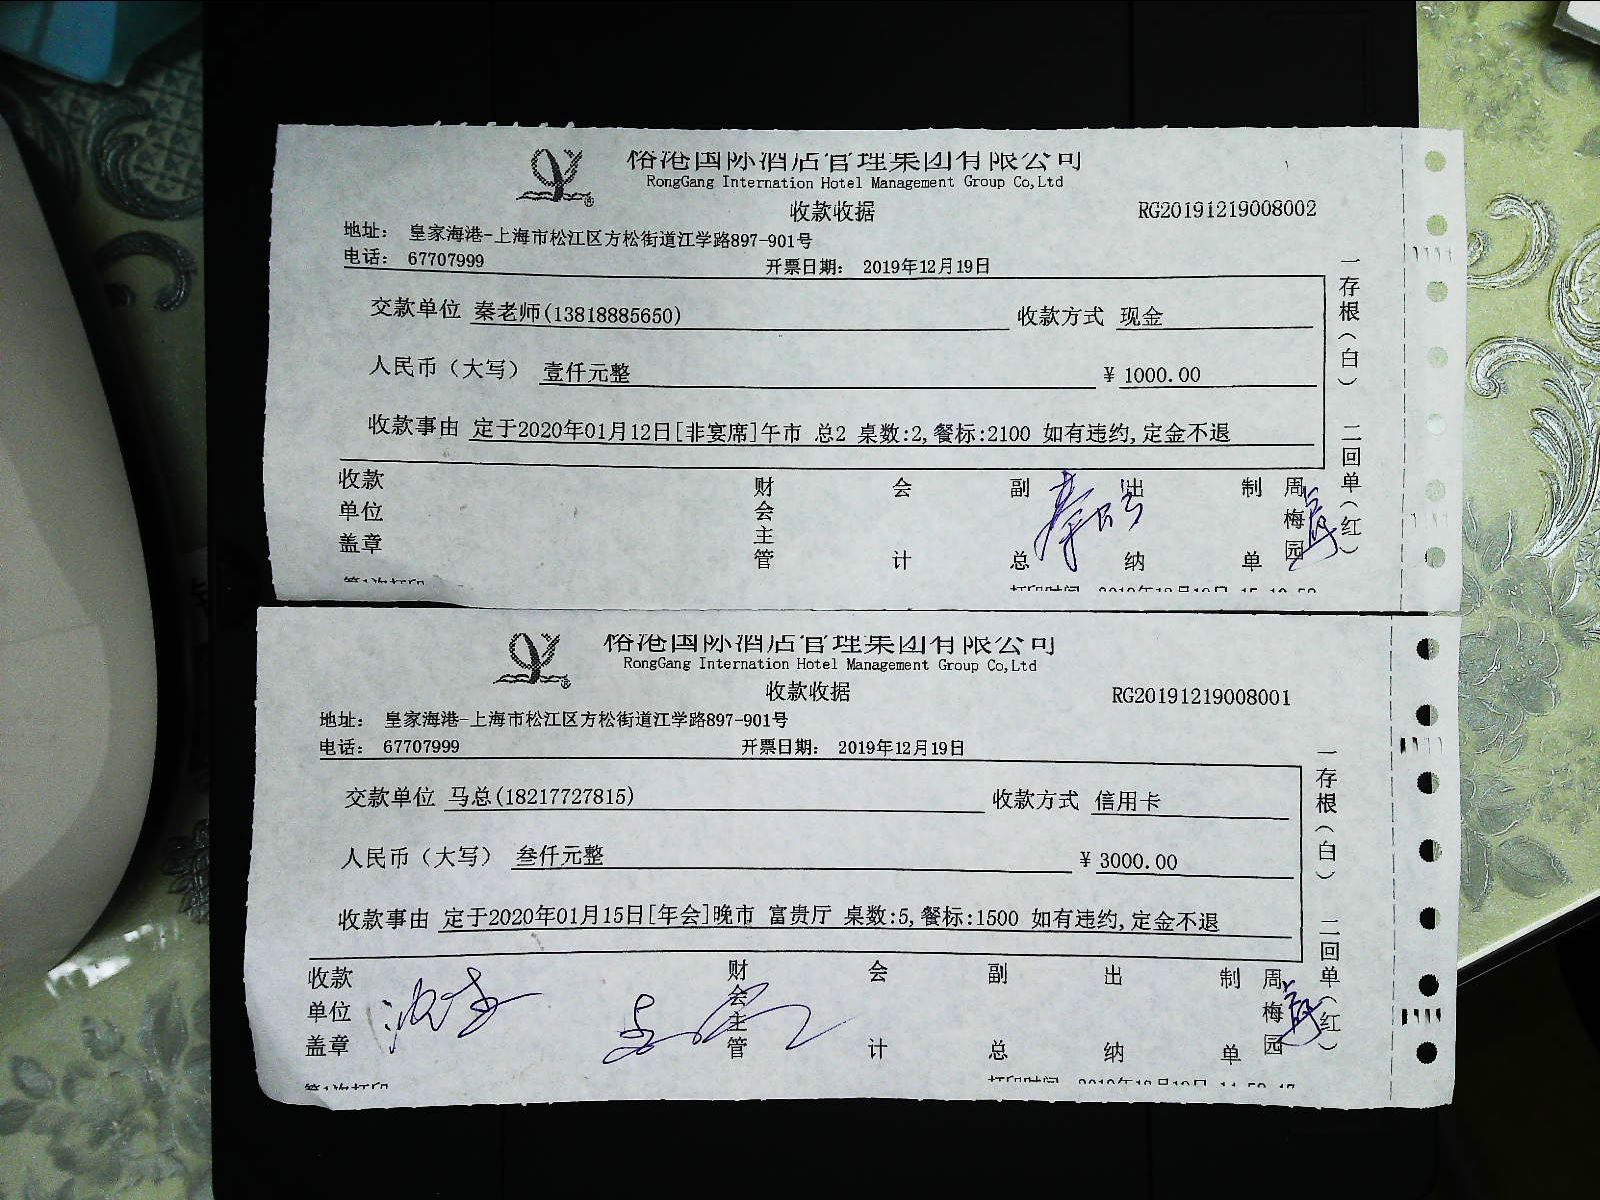 榕港国际酒店管理集团有限公司
RongGang Internation Hotel Management Group Co,Ltd
收款收据
RG20191219008002
地址： 皇家海港-上海市松江区方松街道江学路897-901号
电话： 67707999 开票日期： 2019年12月19日
交款单位 秦老师(13818885650) 收款方式 现金
人民币（大写） 壹仟元整 ￥ 1000.00
收款事由 定于2020年01月12日[非宴席]午市 总2 桌数:2,餐标:2100 如有违约,定金不退
一存根（白） 二回单（红）
收款单位盖章 财会主管 会计 副总 出纳 制单 周梅园
第1次打印 打印时间 2019年12月19日
榕港国际酒店管理集团有限公司
RongGang Internation Hotel Management Group Co,Ltd
收款收据
RG20191219008001
地址： 皇家海港-上海市松江区方松街道江学路897-901号
电话： 67707999 开票日期： 2019年12月19日
交款单位 马总(18217727815) 收款方式 信用卡
人民币（大写） 叁仟元整 ￥ 3000.00
收款事由 定于2020年01月15日[年会]晚市 富贵厅 桌数:5,餐标:1500 如有违约,定金不退
一存根（白） 二回单（红）
收款单位盖章 财会主管 会计 副总 出纳 制单 周梅园
第1次打印 打印时间 2019年12月19日